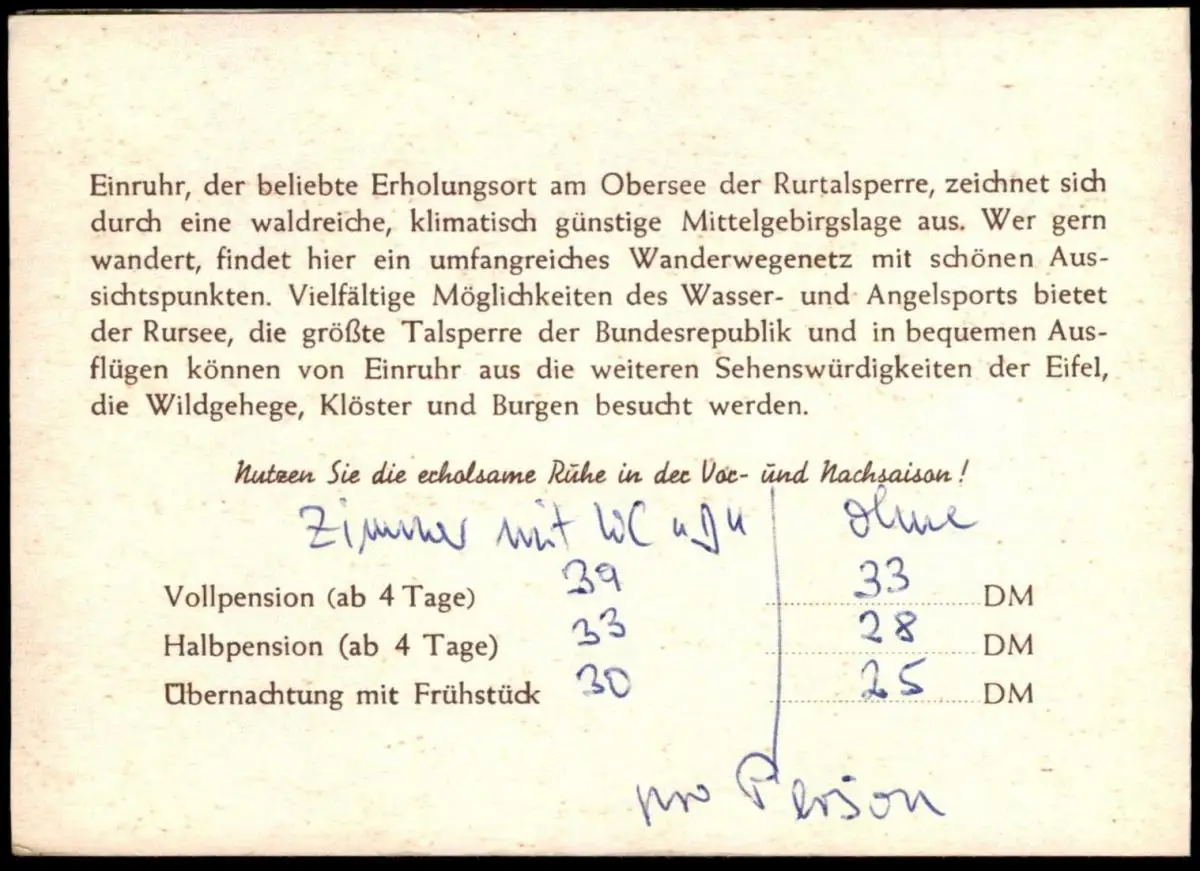 Einruhr, der beliebte Erholungsort am Obersee der Rurtalsperre, zeichnet sich
durch eine waldreiche, klimatisch günstige Mittelgebirgslage aus. Wer gern
wandert, findet hier ein umfangreiches Wanderwegenetz mit schönen Aus-
sichtspunkten. Vielfältige Möglichkeiten des Wasser- und Angelsports bietet
der Rursee, die größte Talsperre der Bundesrepublik und in bequemen Aus-
flügen können von Einruhr aus die weiteren Sehenswürdigkeiten der Eifel,
die Wildgehege, Klöster und Burgen besucht werden.
Nutzen Sie die erholsame Ruhe in der Vor- und Nachsaison!
Zimmer mit WC u D u ohne
Vollpension (ab 4 Tage) 39 33 DM
Halbpension (ab 4 Tage) 33 28 DM
Übernachtung mit Frühstück 30 25 DM
pro Person